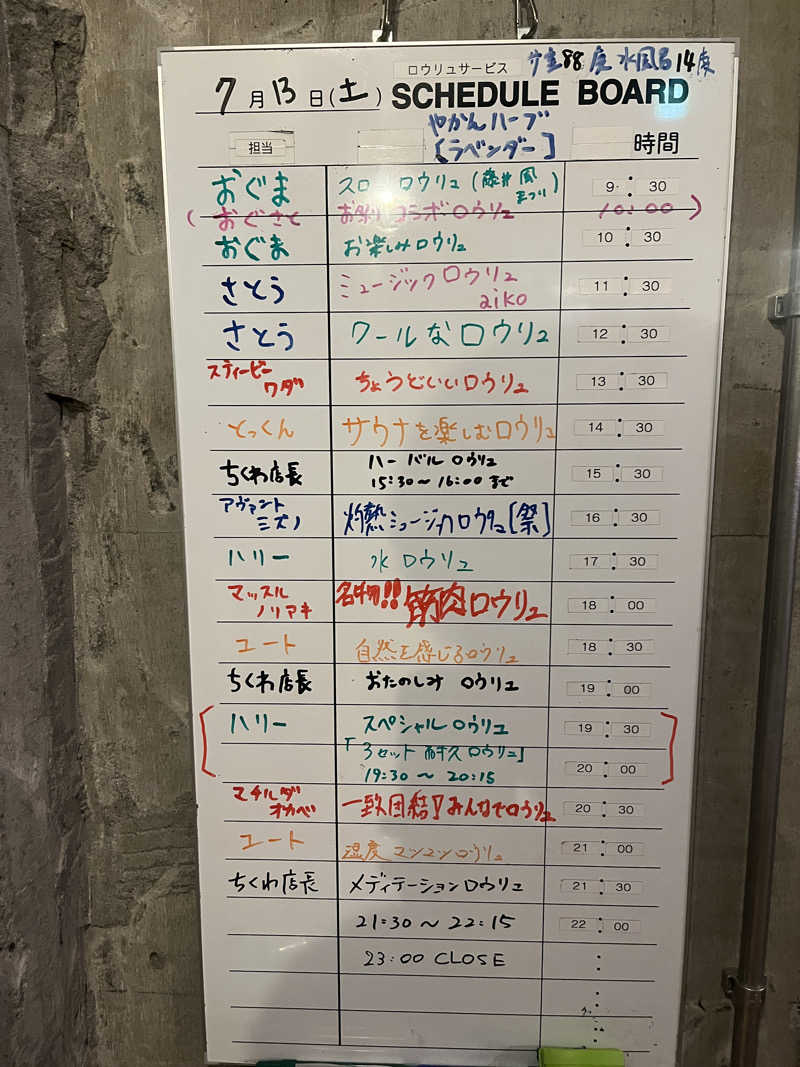 サ室88度 水風呂14度
ロウリュサービス
7月13日(土) SCHEDULE BOARD
やかんハーブ
[ラベンダー]
担当 時間
おぐま スローロウリュ(藤井風まつり) 9:30
(おぐさと お祭りコラボロウリュ 10:00)
おぐま お楽しみロウリュ 10:30
さとう ミュージックロウリュ aiko 11:30
さとう クールなロウリュ 12:30
スティービーワダ ちょうどいいロウリュ 13:30
とっくん サウナを楽しむロウリュ 14:30
ちくわ店長 ハーバルロウリュ 15:30
15:30〜16:00まで
アヴァントミズノ 灼熱ミュージカロウリュ[祭] 16:30
ハリー 水ロウリュ 17:30
マッスルノリアキ 名物!!筋肉ロウリュ 18:00
ユート 自然を感じるロウリュ 18:30
ちくわ店長 おたのしみ ロウリュ 19:00
ハリー スペシャルロウリュ 19:30
「3セット耐久ロウリュ」 20:00
19:30〜20:15
マチルダオカベ 一致団結!みんなでロウリュ 20:30
ユート 湿度マンマンロウリュ 21:00
ちくわ店長 メディテーションロウリュ 21:30
21:30〜22:15 22:00
23:00 CLOSE